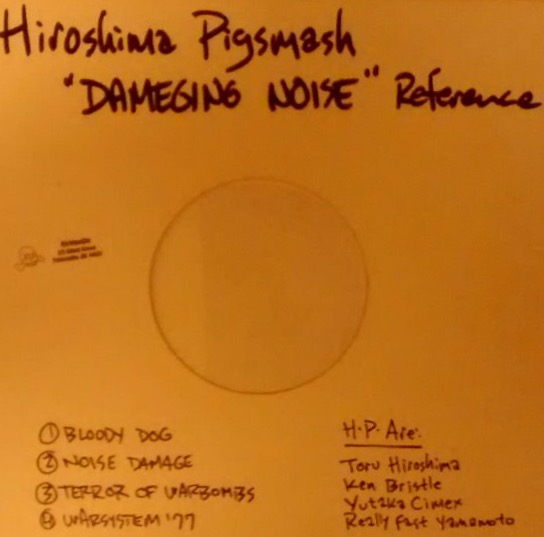 Hiroshima Pigsmash
"DAMEGING NOISE" Reference
① BLOODY DOG
② NOISE DAMAGE
③ TERROR OF WARBOMBS
④ WARSYSTEM '77
H.P. Are:
Toru Hiroshima
Ken Bristle
Yutaka Cimex
Really Fast Yamamoto